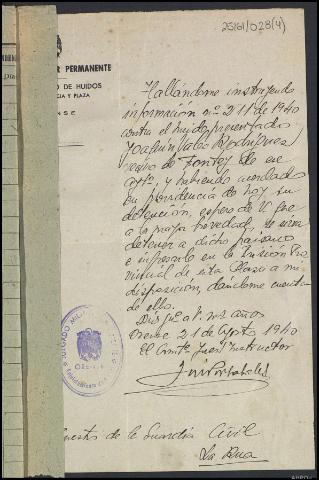 25161/028(4)
R PERMANENTE
O DE HUIDOS
CIA Y PLAZA
ENSE
Hallándome instruyendo
información nº 211 de 1940
contra el huido presentado
Joaquin Vales Rodríguez
vecino de Fontey de ese
Aytº, y habiendo acordado
en providencia de hoy su
detención, espero de V. que
a la mayor brevedad, se sirva
detener a dicho paisano
e ingresarlo en la Prisión Pro
vincial de esta Plaza a mi
disposición, dándome cuenta
de ello.
Dios gue a V. ms años
Orense 21 de Agosto 1940
El Comte Juez Instructor
JUZGADO MILITAR
ORENSE
Puesto de la Guardia Civil
La Rua